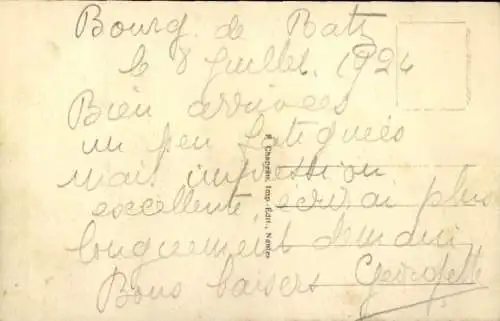 Bourg de Batz
le 8 Juillet 1924
Bien arrivées
un peu fatiguées
mais impression
excellente écrirai plus
longuement demain
Bons baisers Georgette
F. Chapeau, Imp.-Édit., Nantes